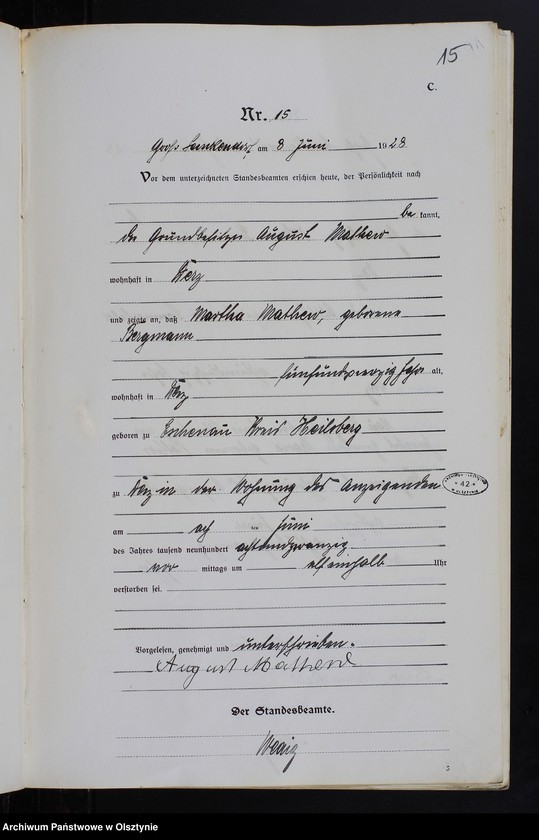 15
C.
Nr. 15
Groß am 8 Juni 1928
Vor dem unterzeichneten Standesbeamten erschien heute, der Persönlichkeit nach
be kannt,
der Grundbesitzer August Mathew
wohnhaft in
und zeigte an, daß Martha Mathew, geborene
Bergmann
fünfundvierzig Jahre alt,
wohnhaft in
geboren zu Eschenau Kreis Heilsberg
zu in der Wohnung des Anzeigenden
am acht ten Juni
des Jahres tausend neunhundert achtundzwanzig
vor mittags um elfeinhalb Uhr
verstorben sei.
Vorgelesen, genehmigt und unterschrieben.
August Mathew
Der Standesbeamte.
42
Archiwum Państwowe w Olsztynie